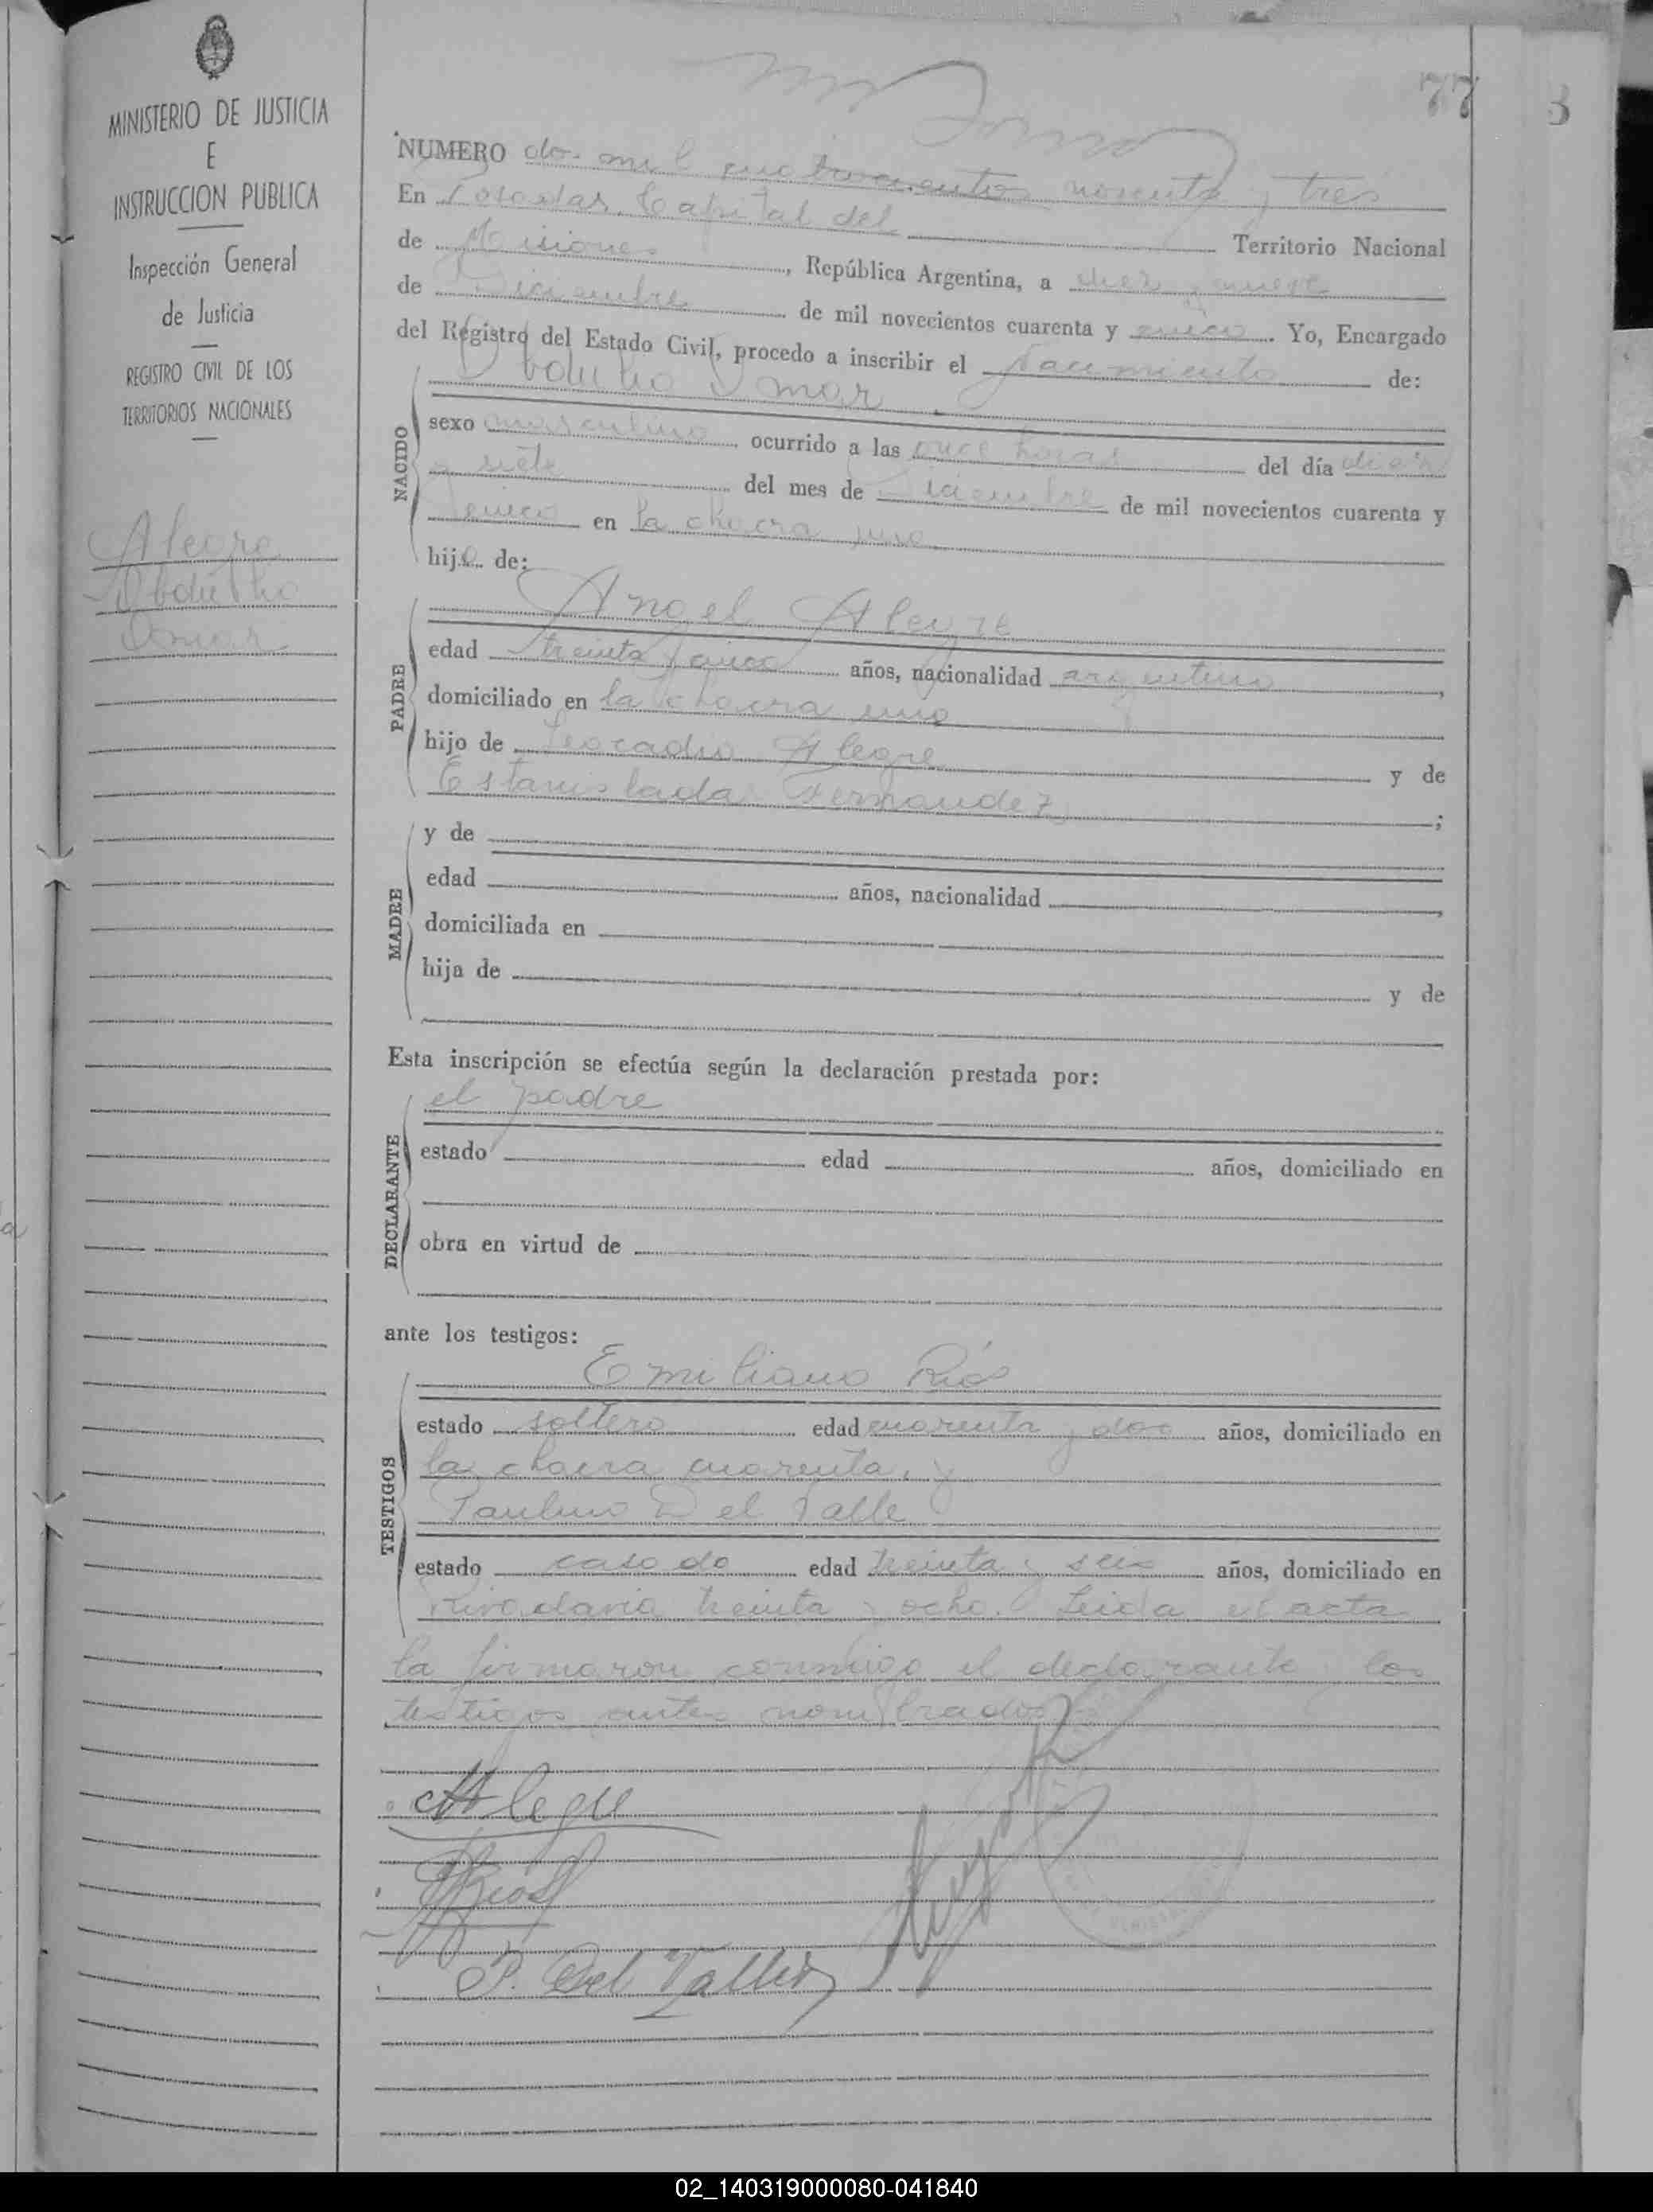 MINISTERIO DE JUSTICIA
E
INSTRUCCION PUBLICA
Inspección General
de Justicia
REGISTRO CIVIL DE LOS
TERRITORIOS NACIONALES
Alegre
Omar
77
3
NUMERO dos mil cuatrocientos noventa y tres
En Posadas, Capital del
de Misiones Territorio Nacional
, República Argentina, a diez y nueve
de Diciembre de mil novecientos cuarenta y cinco. Yo, Encargado
del Registro del Estado Civil, procedo a inscribir el Nacimiento de:
Omar
NACIDO
sexo masculino ocurrido a las once horas del día diez
y siete del mes de Diciembre de mil novecientos cuarenta y
cinco en la chacra una
hijo de:
Angel Alegre
PADRE
edad treinta y cinco años, nacionalidad argentino,
domiciliado en la chacra una
hijo de Leocadio Alegre y de
Estanislada Fernandez;
y de
MADRE
edad años, nacionalidad
domiciliada en
hija de y de
Esta inscripción se efectúa según la declaración prestada por:
el padre
DECLARANTE
estado edad años, domiciliado en
obra en virtud de
ante los testigos:
Emiliano Ríos
TESTIGOS
estado soltero edad cuarenta y dos años, domiciliado en
la chacra cuarenta, y
Paulino Del Valle
estado casado edad treinta y seis años, domiciliado en
Rivadavia treinta y ocho. Leida el acta
la firmaron conmigo el declarante y los
testigos antes nombrados
Alegre
Rios
P. Del Valle
02_140319000080-041840